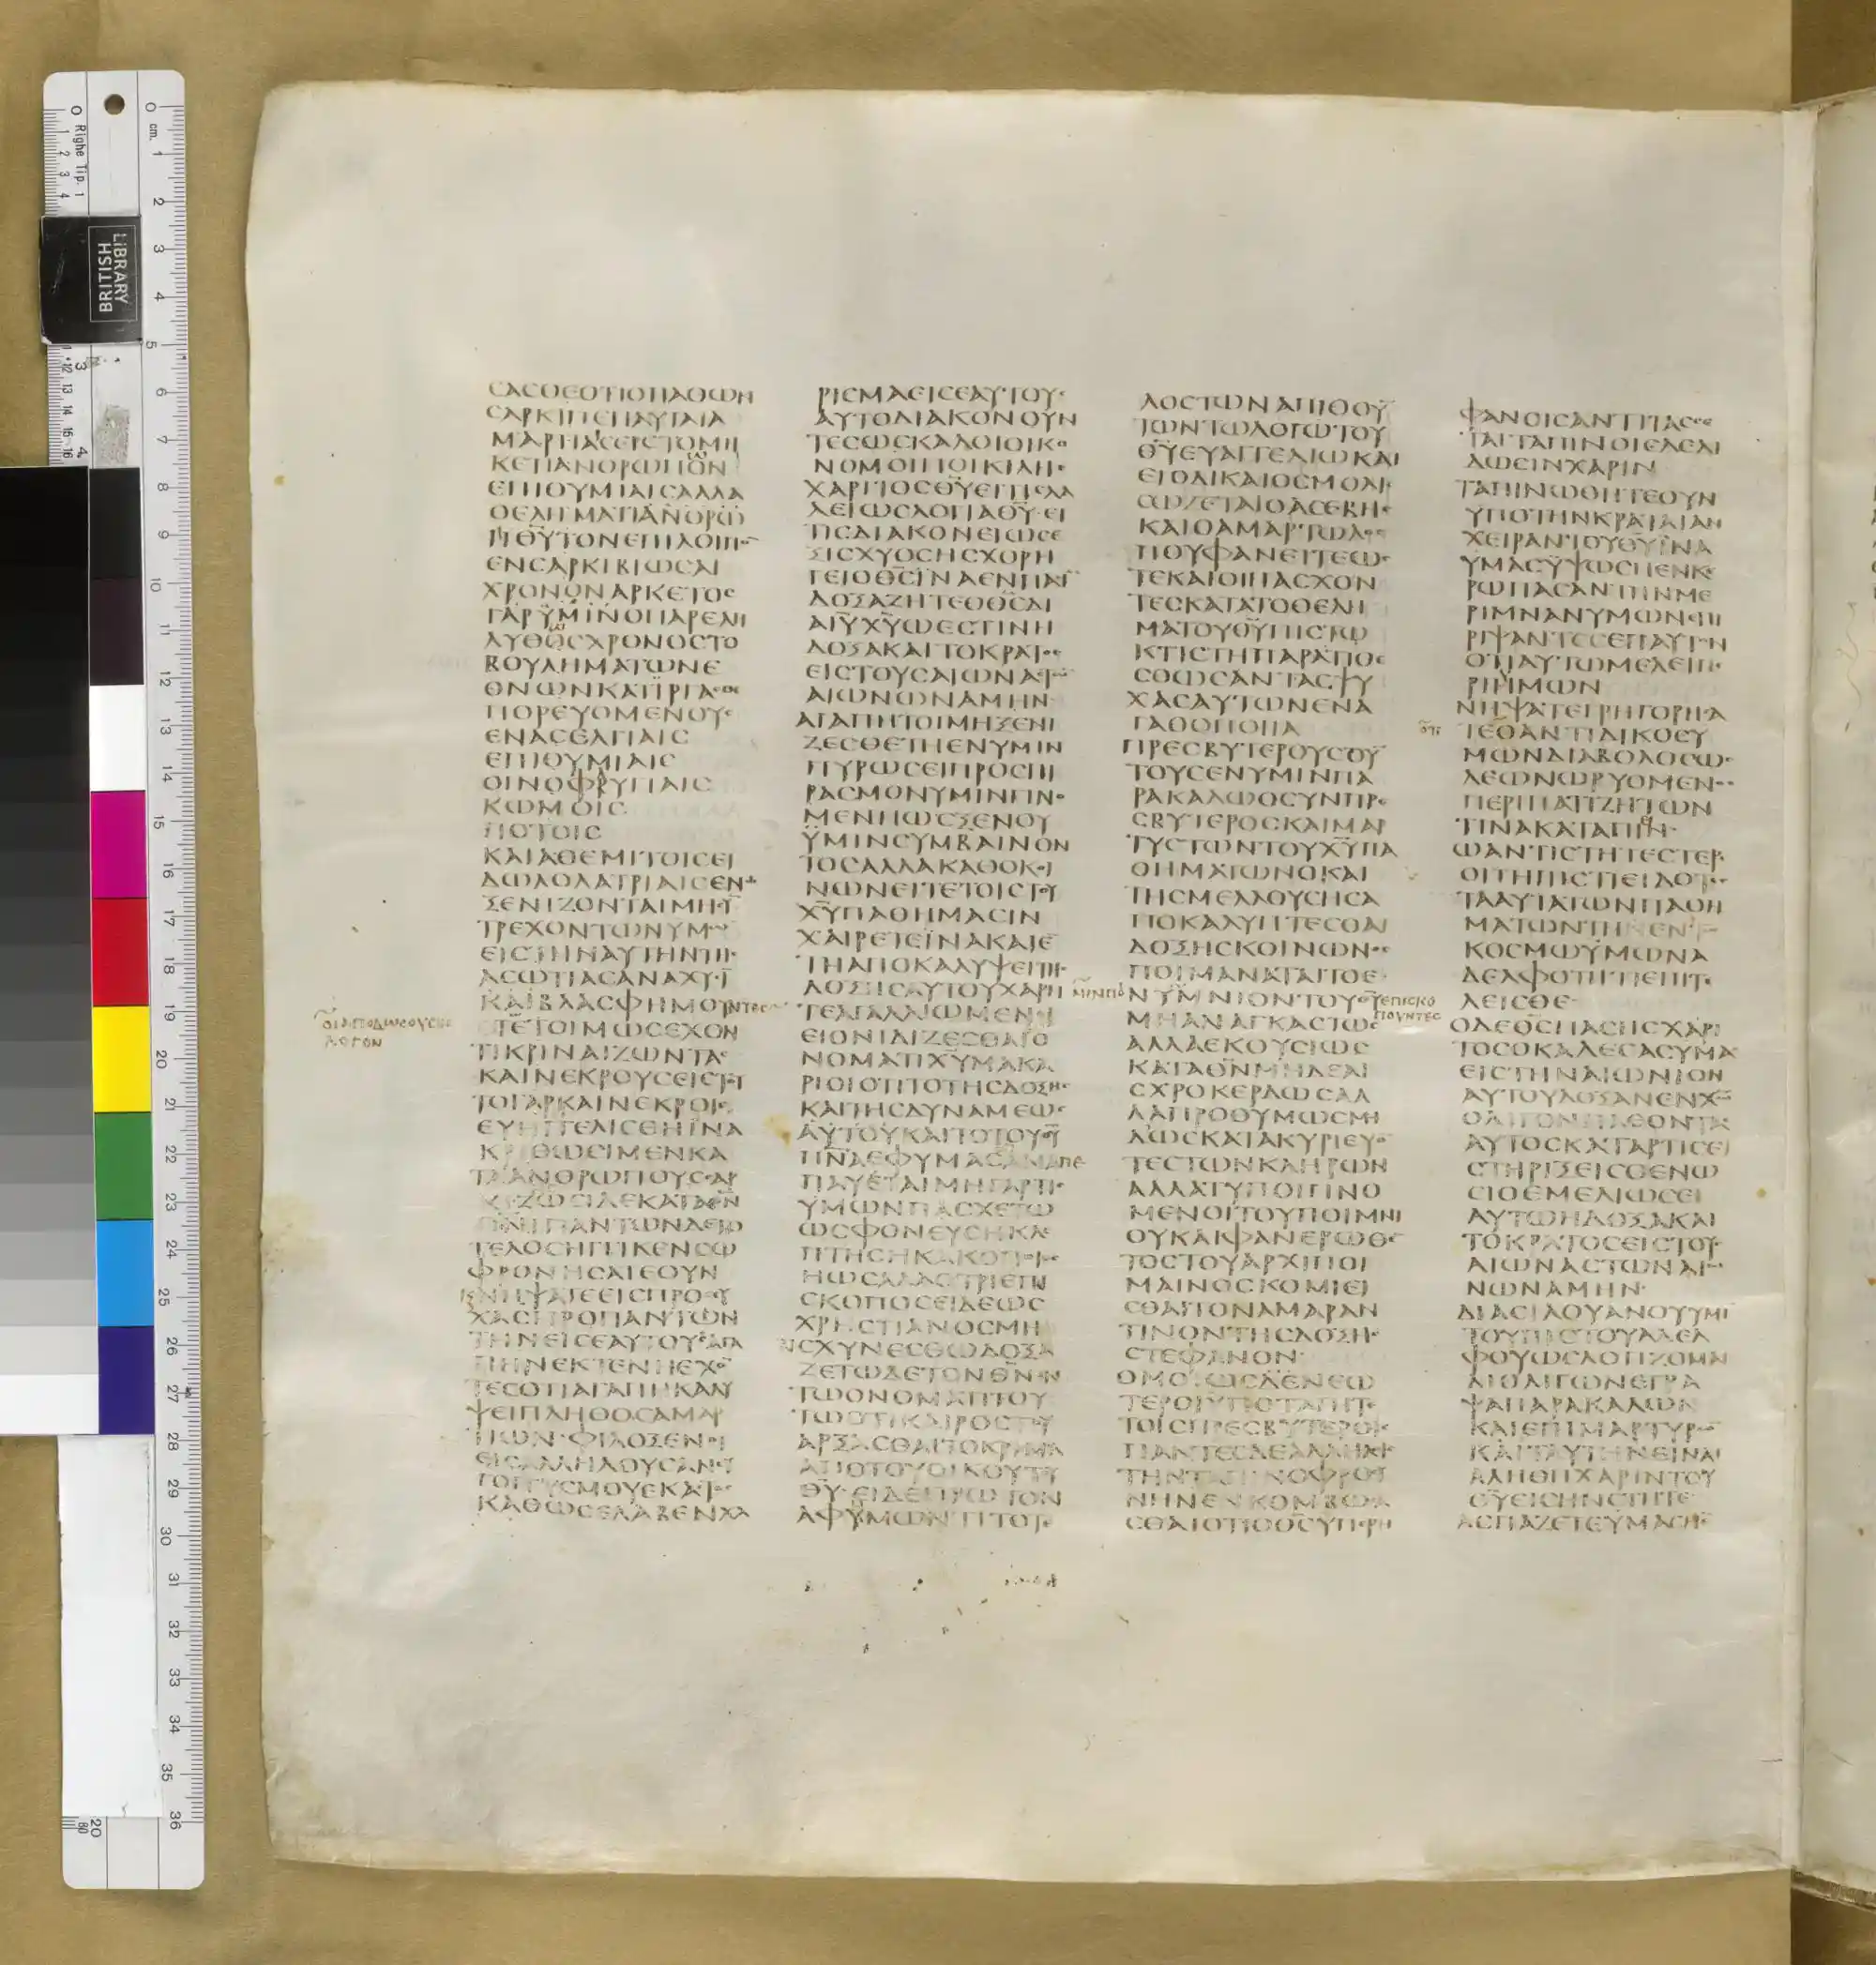 CΑCΘΕΟΤΙΟΠΑΘΩΝ
CΑΡΚΙΠΕΠΑΥΤΑΙΑ
ΜΑΡΤΙΑCΕΙCΤΟΜΗ
ΚΕΤΙΑΝΘΡΩΠΩΝ
ΕΠΙΘΥΜΙΑΙCΑΛΛΑ
ΕΝCΑΡΚΙΒΙΩCΑΙ
ΧΡΟΝΟΝΑΡΚΕΤΟC
ΓΑΡΫΜΙΝΟΠΑΡΕΛΗ
ΛΥΘΩCΧΡΟΝΟCΤΟ
ΒΟΥΛΗΜΑΤΩΝΕ
ΘΝΩΝΚΑΤΙΡΓΑCΘΑΙ
ΠΟΡΕΥΟΜΕΝΟΥC
ΕΝΑCΕΛΓΙΑΙC
ΕΠΙΘΥΜΙΑΙC
ΟΙΝΟΦΡΥΓΙΑΙC
ΚΩΜΟΙC
ΠΟΤΟΙC
ΚΑΙΑΘΕΜΙΤΟΙCΕΙ
ΔΩΛΟΛΑΤΡΙΑΙCΕΝΩ
ΞΕΝΙΖΟΝΤΑΙΜΗCΥ
ΤΡΕΧΟΝΤΩΝΥΜΩΝ
ΕΙCΤΗΝΑΥΤΗΝΤΗC
ΑCΩΤΙΑCΑΝΑΧΥCΙ
ΚΑΙΒΛΑCΦΗΜΟΥΝΤΕC
ΟΙΑΠΟΔΩCΟΥCΙΝ
ΛΟΓΟΝ
ΤΕΤΟΙΜΩCΕΧΟΝ
ΤΙΚΡΙΝΑΙΖΩΝΤΑC
ΚΑΙΝΕΚΡΟΥCΕΙCΤΥ
ΤΟΓΑΡΚΑΙΝΕΚΡΟΙC
ΕΥΗΓΓΕΛΙCΘΗΪΝΑ
ΚΡΙΘΩCΙΜΕΝΚΑ
ΤΑΑΝΘΡΩΠΟΥCCΑΡ
ΚΙΖΩCΙΔΕΚΑΤΑΘΝ
ΠΝΙΠΑΝΤΩΝΔΕΤΟ
ΤΕΛΟCΗΓΓΙΚΕΝCΩ
ΦΡΟΝΗCΑΤΕΟΥΝ
ΚΝΗΨΑΤΕΕΙCΠΡΟCΕΥ
ΧΑCΠΡΟΠΑΝΤΩΝ
ΤΗΝΕΙCΕΑΥΤΟΥCΑΓΑ
ΠΗΝΕΚΤΕΝΗΕΧΟ
ΤΕCΟΤΙΑΓΑΠΗΚΑΛΥ
ΨΕΙΠΛΗΘΟCΑΜΑΡ
ΤΙΩΝ·ΦΙΛΟΞΕΝΟΙ
ΕΙCΑΛΛΗΛΟΥCΑΝΕΥ
ΓΟΓΓΥCΜΟΥΕΚΑC
ΚΑΘΩCΕΛΑΒΕΝΧΑ
ΡΙCΜΑΕΙCΕΑΥΤΟΥC
ΑΥΤΟΔΙΑΚΟΝΟΥΝ
ΤΕCΩCΚΑΛΟΙΟΙΚΟ
ΝΟΜΟΙΠΟΙΚΙΛΗC
ΧΑΡΙΤΟCΘΫΕΙΤΙCΛΑ
ΛΕΙΩCΛΟΓΙΑΘΥ·ΕΙ
ΤΙCΔΙΑΚΟΝΕΙΩCΕ
ΞΙCΧΥΟCΗCΧΟΡΗ
ΓΕΙΟΘCΪΝΑΕΝΠΑCΙ
ΔΟΞΑΖΗΤΕΟΘCΔΙ
ΑΙΥΧΥΩΕCΤΙΝΗ
ΔΟΞΑΚΑΙΤΟΚΡΑΤΟC
ΕΙCΤΟΥCΑΙΩΝΑC
ΑΙΩΝΩΝΑΜΗΝ·
ΑΓΑΠΗΤΟΙΜΗΞΕΝΙ
ΖΕCΘΕΤΗΕΝΥΜΙΝ
ΠΥΡΩCΕΙΠΡΟCΠΙ
ΡΑCΜΟΝΥΜΙΝΓΙΝΟ
ΜΕΝΗΩCΞΕΝΟΥ
ΫΜΙΝCΥΜΒΑΙΝΟΝ
ΤΟCΑΛΛΑΚΑΘΟΚΟΙ
ΝΩΝΕΙΤΕΤΟΙCΤΟΥ
ΧΥΠΑΘΗΜΑCΙΝ
ΧΑΙΡΕΤΕΪΝΑΚΑΙΕ
ΤΗΑΠΟΚΑΛΥΨΕΙΤΗC
ΔΟΞΗCΑΥΤΟΥΧΑΡΗ
ΤΕΑΓΑΛΛΙΩΜΕΝΟΙ
ΕΙΟΝΙΔΙΖΕCΘΑΙΟ
ΝΟΜΑΤΙΧΥΜΑΚΑ
ΡΙΟΙΟΤΙΤΟΤΗCΔΟΞΗC
ΚΑΙΤΗCΔΥΝΑΜΕΩC
ΑΥΤΟΥΚΑΙΤΟΤΟΥΘΥ
ΠΝΑΕΦΥΜΑCΑΝΑΠΕ
ΠΑΥΕΤΑΙΜΗΓΑΡΤΙC
ΥΜΩΝΠΑCΧΕΤΩ
ΩCΦΟΝΕΥCΗΚΛΕ
ΠΤΗCΗΚΑΚΟΠΟΙΟC
ΗΩCΑΛΛΟΤΡΙΕΠΙ
CΚΟΠΟCΕΙΔΕΩC
ΧΡΗCΤΙΑΝΟCΜΗ
ΑΙCΧΥΝΕCΘΩΔΟΞΑ
ΖΕΤΩΔΕΤΟΝΘΝΕΝ
ΤΩΟΝΟΜΑΤΙΤΟΥ
ΤΩΟΤΙΚΑΙΡΟCΤΟΥ
ΑΡΞΑCΘΑΙΤΟΚΡΙΜΑ
ΑΠΟΤΟΥΟΙΚΟΥΤΟΥ
ΘΥ·ΕΙΔΕΠΡΩΤΟΝ
ΑΦΫΜΩΝΤΙΤΟΤΕ
ΛΟCΤΩΝΑΠΙΘΟΥ
ΤΩΝΤΩΛΟΓΩΤΟΥ
ΘΫΕΥΑΓΓΕΛΙΩΚΑΙ
ΕΙΟΔΙΚΑΙΟCΜΟΛΙC
CΩΖΕΤΑΙΟΑCΕΒΗC
ΚΑΙΟΑΜΑΡΤΩΛΟC
ΠΟΥΦΑΝΕΙΤΕΩC
ΤΕΚΑΙΟΙΠΑCΧΟΝ
ΤΕCΚΑΤΑΤΟΘΕΛΗ
ΜΑΤΟΥΘΥΠΙCΤΩ
ΚΤΙCΤΗΠΑΡΑΤΙΘΕ
CΘΩCΑΝΤΑCΨΥ
ΧΑCΑΥΤΩΝΕΝΑ
ΓΑΘΟΠΟΙΙΑ
ΠΡΕCΒΥΤΕΡΟΥCΟΥ
ΤΟΥCΕΝΥΜΙΝΠΑ
ΡΑΚΑΛΩΟCΥΝΠΡΕ
CΒΥΤΕΡΟCΚΑΙΜΑΡ
ΤΥCΤΩΝΤΟΥΧΥΠΑ
ΘΗΜΑΤΩΝΟΚΑΙ
ΤΗCΜΕΛΛΟΥCΗCΑ
ΠΟΚΑΛΥΠΤΕCΘΑΙ
ΔΟΞΗCΚΟΙΝΩΝΟC
ΠΟΙΜΑΝΑΤΑΙΤΟΕ
ΝΥΜΝΙΟΝΤΟΥΘΥ
ΕΠΙCΚΟ
ΠΟΥΝΤΕC
ΜΗΑΝΑΓΚΑCΤΩC
ΑΛΛΑΕΚΟΥCΙΩC
ΚΑΤΑΘΝΜΗΔΕΑΙ
CΧΡΟΚΕΡΔΩCΑΛ
ΛΑΠΡΟΘΥΜΩCΜΗ
ΔΩCΚΑΤΑΚΥΡΙΕΥΟ
ΤΕCΤΩΝΚΛΗΡΩΝ
ΑΛΛΑΤΥΠΟΙΓΙΝΟ
ΜΕΝΟΙΤΟΥΠΟΙΜΝΙ
ΟΥΚΑΙΦΑΝΕΡΩΘΕ
ΤΟCΤΟΥΑΡΧΙΠΟΙ
ΜΑΙΝΟCΚΟΜΙΕΙ
CΘΑΙΤΟΝΑΜΑΡΑΝ
ΤΙΝΟΝΤΗCΔΟΞΗC
CΤΕΦΑΝΟΝ·
ΟΜΟΙΩCΔΕΝΕΩ
ΤΕΡΟΙΥΠΟΤΑΓΗΤΕ
ΤΟΙCΠΡΕCΒΥΤΕΡΟΙC
ΠΑΝΤΕCΔΕΑΛΛΗΛΟΙC
ΤΗΝΤΑΠΙΝΟΦΡΟCΥ
ΝΗΝΕΝΚΟΜΒΩCΑ
CΘΑΙΟΤΙΟΘCΥΠΕΡΗ
ΦΑΝΟΙCΑΝΤΙΤΑCCΕ
ΤΑΙΤΑΠΙΝΟΙCΔΕΔΙ
ΔΩCΙΝΧΑΡΙΝ
ΤΑΠΙΝΩΘΗΤΕΟΥΝ
ΥΠΟΤΗΝΚΡΑΤΑΙΑΝ
ΧΕΙΡΑΝΤΟΥΘΥΪΝΑ
ΫΜΑCΫΨΩCΗΕΝΚΕ
ΡΩΠΑCΑΝΤΗΝΜΕ
ΡΙΜΝΑΝΥΜΩΝΕΠΙ
ΡΙΨΑΝΤΕCΕΠΑΥΤΟΝ
ΟΤΙΑΥΤΩΜΕΛΕΙΠΕ
ΡΙΗΜΩΝ
ΝΗΨΑΤΕΓΡΗΓΟΡΗCΑ
ΟΤΙ
ΤΕΟΑΝΤΙΔΙΚΟCΥ
ΜΩΝΔΙΑΒΟΛΟCΩC
ΛΕΩΝΩΡΥΟΜΕΝΟC
ΠΕΡΙΠΑΤΙΖΗΤΩΝ
ΤΙΝΑΚΑΤΑΠΙΕΙΝ·
ΩΑΝΤΙCΤΗΤΕCΤΕΡΕ
ΟΙΤΗΠΙCΤΙΕΙΔΟΤΕC
ΤΑΑΥΤΑΤΩΝΠΑΘΗ
ΜΑΤΩΝΤΗΕΝΤΩ
ΚΟCΜΩΫΜΩΝΑ
ΔΕΛΦΟΤΗΤΙΕΠΙΤΕ
ΛΕΙCΘΕ·
ΟΔΕΘCΠΑCΗCΧΑΡΙ
ΤΟCΟΚΑΛΕCΑCΥΜΑC
ΕΙCΤΗΝΑΙΩΝΙΟΝ
ΑΥΤΟΥΔΟΞΑΝΕΝΧΩ
ΟΛΙΓΟΝΠΑΘΟΝΤΑC
ΑΥΤΟCΚΑΤΑΡΤΙCΕΙ
CΤΗΡΙΞΕΙCΘΕΝΩ
CΙΘΕΜΕΛΙΩCΕΙ
ΑΥΤΩΗΔΟΞΑΚΑΙ
ΤΟΚΡΑΤΟCΕΙCΤΟΥC
ΑΙΩΝΑCΤΩΝΑΙΩ
ΝΩΝΑΜΗΝ·
ΔΙΑCΙΛΟΥΑΝΟΥΥΜΙ
ΤΟΥΠΙCΤΟΥΑΔΕΛ
ΦΟΥΩCΛΟΓΙΖΟΜΑΙ
ΔΙΟΛΙΓΩΝΕΓΡΑ
ΨΑΠΑΡΑΚΑΛΩΝ
ΚΑΙΕΠΙΜΑΡΤΥΡΩ
ΚΑΙΤΑΥΤΗΝΕΙΝΑΙ
ΑΛΗΘΗΧΑΡΙΝΤΟΥ
ΘΥΕΙCΗΝCΤΗΤΕ
ΑCΠΑΖΕΤΕΥΜΑCΗ